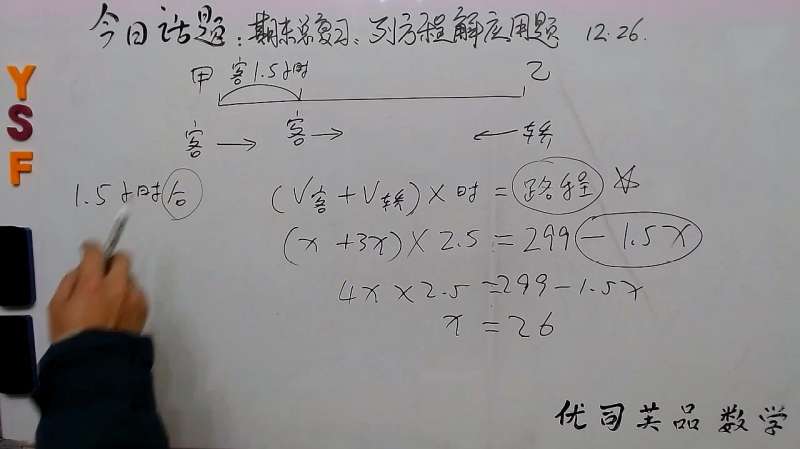 今日话题：期末总复习、列方程解应用题 12.26.
甲 客1.5小时 乙
客 → 客 → ← 轿
1.5小时后 (V客+V轿)×时=路程
(x+3x)×2.5=299-1.5x
4x×2.5=299-1.5x
x=26
YSF
优司英品数学